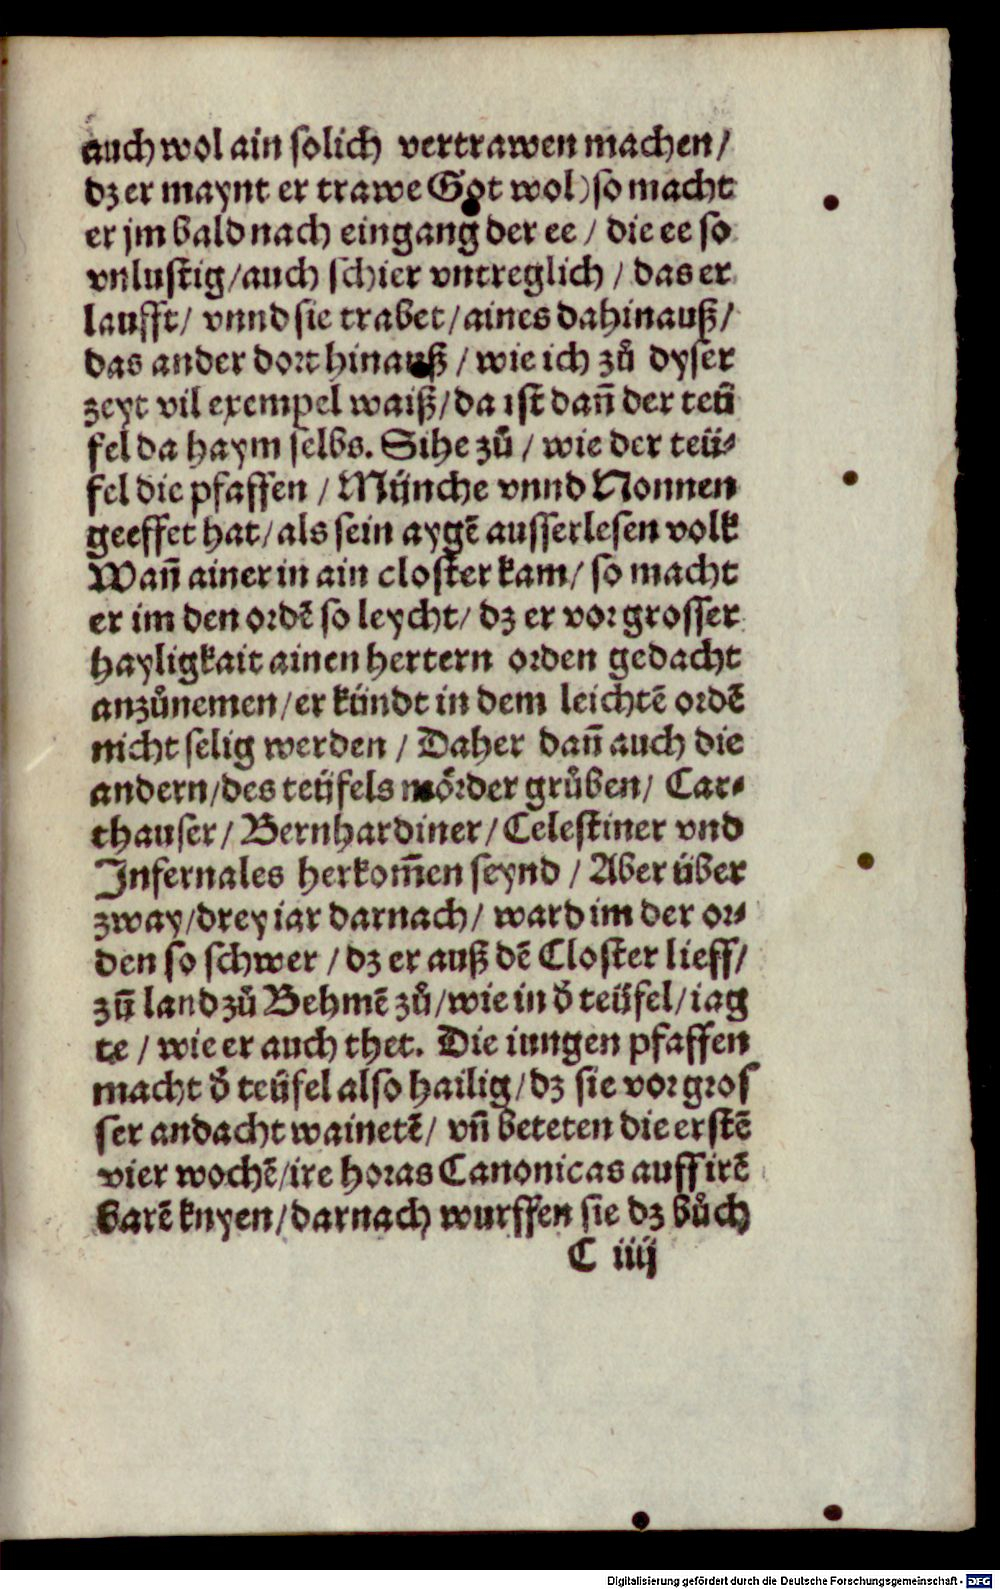 auch wol ain solich vertrawen machen /
dz er maynt er trawe Got wol) so macht
er jm bald nach eingang der ee / die ee so
vnlustig / auch schier vntreglich / das er
laufft / vnnd sie trabet / aines dahinauß /
das ander dort hinauß / wie ich zů dyser
zeyt vil exempel waiß / da ist dañ der teü
fel da haym selbs. Sihe zů / wie der teü⸗
fel die pfaffen / Münche vnnd Nonnen
geeffet hat / als sein aygẽ ausserlesen volk
Wañ ainer in ain closter kam / so macht
er im den ordẽ so leycht / dz er vor grosser
hayligkait ainen hertern orden gedacht
anzůnemen / er kündt in dem leichtẽ ordẽ
nicht selig werden / Daher dañ auch die
andern / des teüfels mörder grůben / Car⸗
thauser / Bernhardiner / Celestiner vnd
Infernales herkom̃en seynd / Aber über
zway / drey iar darnach / ward im der or⸗
den so schwer / dz er auß dẽ Closter lieff /
zũ land zů Behmẽ zů / wie in d̓ teüfel / iag
te / wie er auch thet. Die iungen pfaffen
macht d̓ teüfel also hailig / dz sie vor gros
ser andacht wainetẽ / vñ beteten die erstẽ
vier wochẽ / ire horas Canonicas auff irẽ
barẽ knyen / darnach wurffen sie dz bůch
C iiij
Digitalisierung gefördert durch die Deutsche Forschungsgemeinschaft - DFG